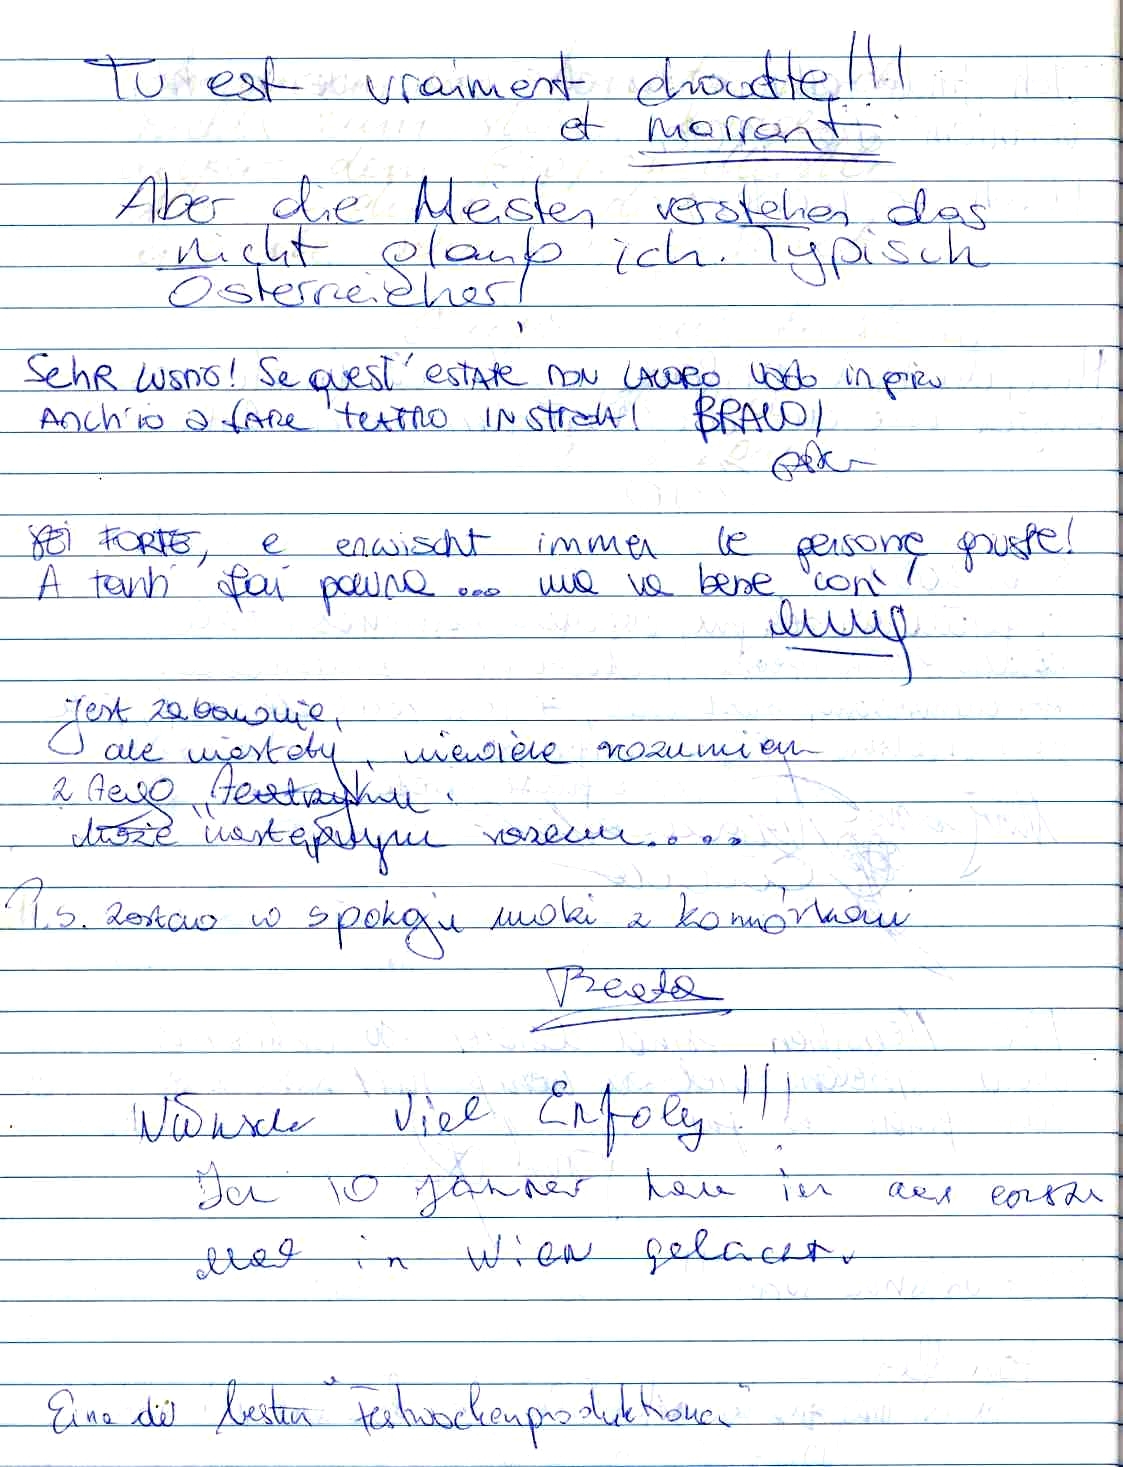 Tu est vraiment chouette!!!
et marrant
Aber die Meisten verstehen das
nicht glaub ich. Typisch
Österreicher!
Sehr lustig! Se quest' estate non lavoro vado in giro
anch'io a fare teatro in strada! BRAVO!
SEI FORTE, e erwischt immer le persone giuste!
A tanti fai paura ... ma va bene così!
Jest zabawnie,
ale niestety, niewiele rozumiem
z tego "teatrzyku".
Może następnym razem....
P.s. Zostaw w spokoju ludzi z komórkami
Beata
Wünsche Viel Erfolg!!!
In 10 Jahren habe ich das erste
Mal in Wien gelacht.
Eine der besten "Festwochenproduktionen"